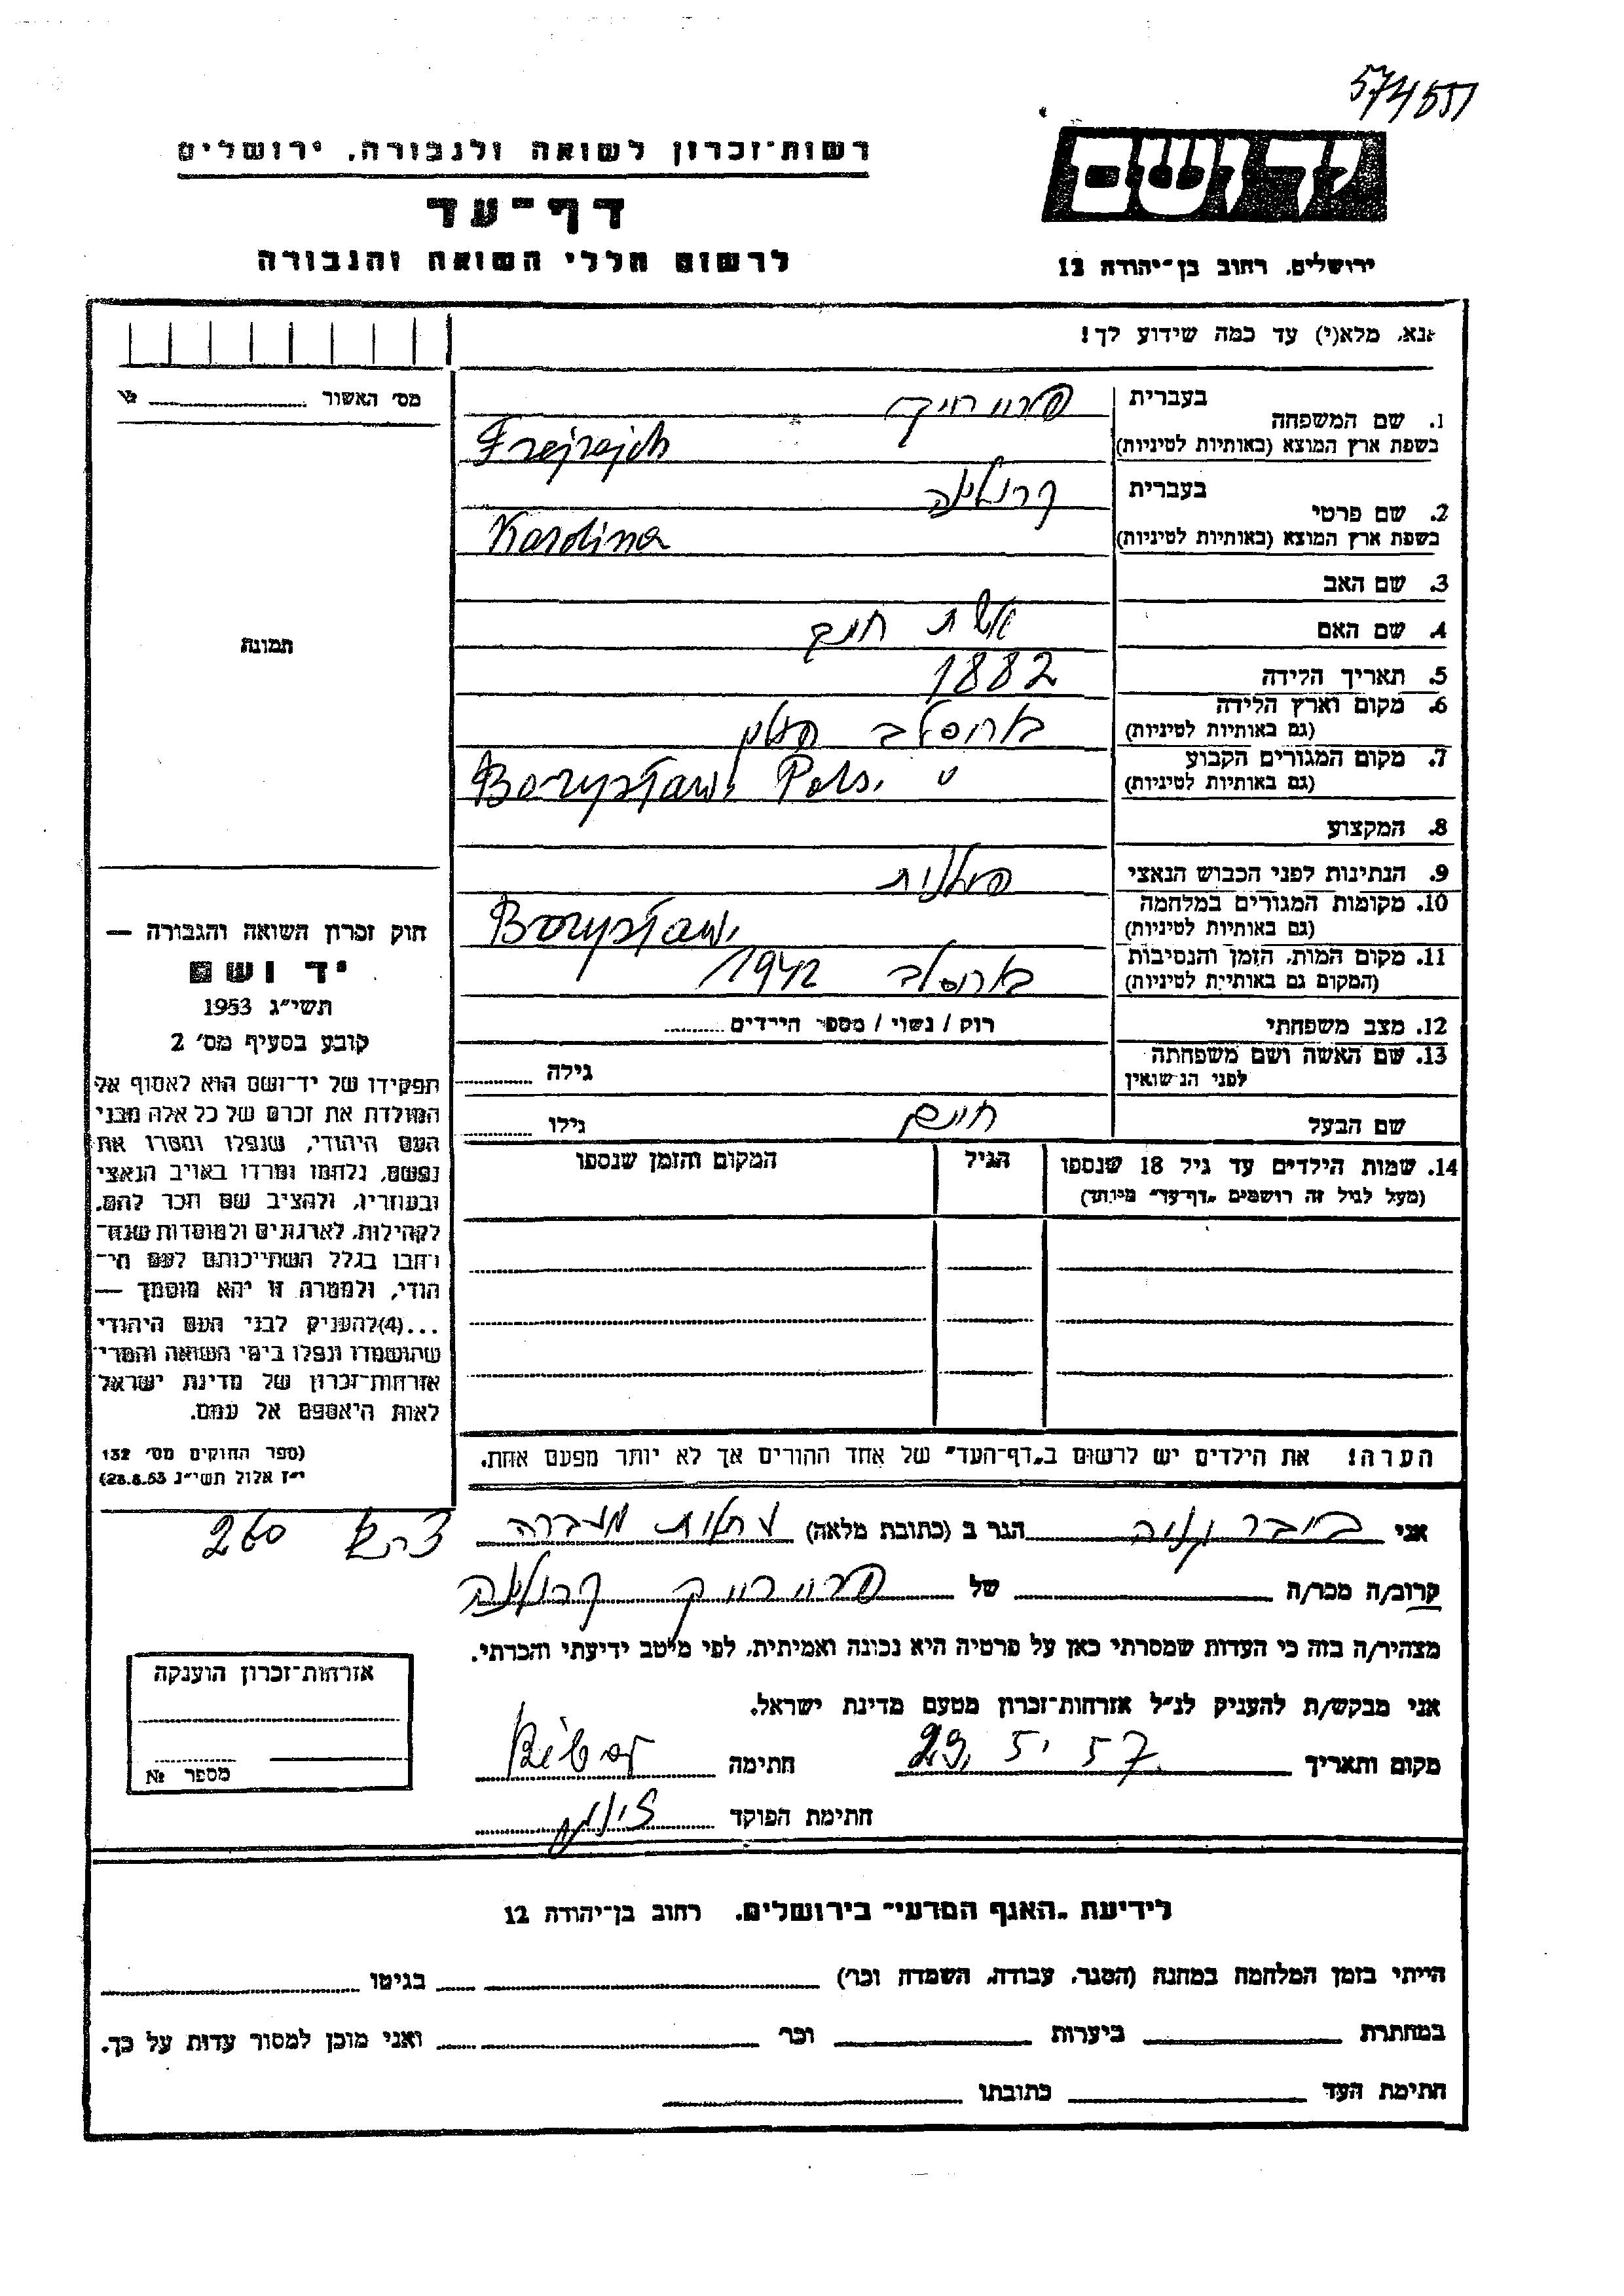 574551
רשות־זכרון לשואה ולגבורה, ירושלים
ידושם
דף־עד
לרשום חללי השואה והגבורה
ירושלים, רחוב בן־יהודה 12
אנא, מלא(י) עד כמה שידוע לך!
מס׳ האשור
בעברית
1. שם המשפחה
Frejrejch
בשפת ארץ המוצא (באותיות לטיניות)
בעברית קרולינה
2. שם פרטי
Karolina
בשפת ארץ המוצא (באותיות לטיניות)
3. שם האב
תמונה
4. שם האם אשת חיים
5. תאריך הלידה 1882
6. מקום וארץ הלידה
(גם באותיות לטיניות) בוריסלב פולין
7. מקום המגורים הקבוע
(גם באותיות לטיניות) Borysław, Pols. "
8. המקצוע
9. הנתינות לפני הכבוש הנאצי פולנית
10. מקומות המגורים במלחמה
(גם באותיות לטיניות) Borysław,
11. מקום המות, הזמן והנסיבות
(המקום גם באותיות לטיניות) בוריסלב 1942
12. מצב משפחתי רווק / נשוי / מספר הילדים
13. שם האשה ושם משפחתה
לפני הנישואין גילה
שם הבעל חיים גילו
14. שמות הילדים עד גיל 18 שנספו הגיל המקום והזמן שנספו
(מעל לגיל זה רושמים „דף־עד” מיוחד)
חוק זכרון השואה והגבורה —
יד ושם
תשי״ג 1953
קובע בסעיף מס׳ 2
תפקידו של יד־ושם הוא לאסוף אל
המולדת את זכרם של כל אלה מבני
העם היהודי, שנפלו ומסרו את
נפשם, נלחמו ומרדו באויב הנאצי
ובעוזריו, ולהציב שם וזכר להם,
לקהילות, לארגונים ולמוסדות שנח־
רבו בגלל השתייכותם לעם הי־
הודי, ולמטרה זו יהא מוסמך —
...(4)להעניק לבני העם היהודי
שהושמדו ונפלו בימי השואה והמרי־
אזרחות־זכרון של מדינת ישראל
לאות היאספם אל עמם.
(ספר החוקים מס׳ 132
י״ז אלול תשי״ג 28.8.53)
הערה! את הילדים יש לרשום ב„דף־העד” של אחד ההורים אך לא יותר מפעם אחת.
אני ביבר הגר ב (כתובת מלאה) נחלות מעברה
צריף 260
קרוב/ה מכר/ה של פרייריך קרולינה
מצהיר/ה בזה כי העדות שמסרתי כאן על פרטיה היא נכונה ואמיתית, לפי מיטב ידיעתי והכרתי.
אני מבקש/ת להעניק לנ״ל אזרחות־זכרון מטעם מדינת ישראל.
מקום ותאריך 29. 5. 57 חתימה Biber
חתימת הפוקד
אזרחות־זכרון הוענקה
מספר №
לידיעת „האגף המדעי” בירושלים, רחוב בן־יהודה 12
הייתי בזמן המלחמה במחנה (הסגר, עבודה, השמדה וכו׳) בגיטו
במחתרת ביערות וכו׳ ואני מוכן למסור עדות על כך.
חתימת העד כתובתו